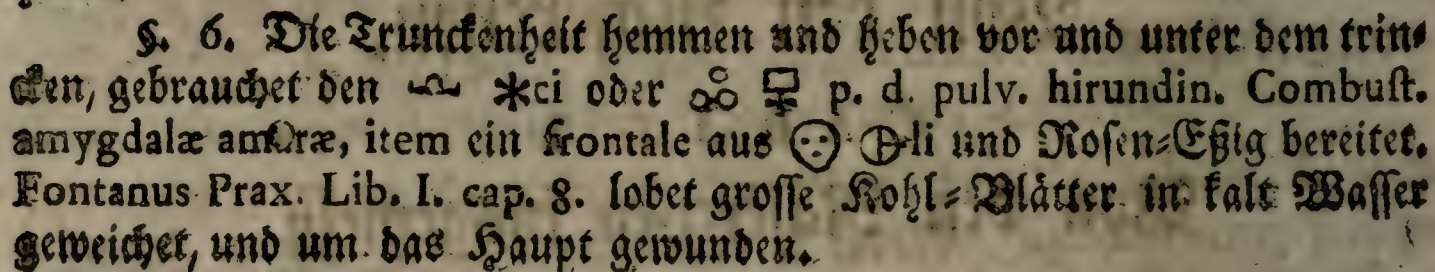 §. 6. Die Trunckenheit hemmen und heben vor und unter dem trin⸗
cken, gebrauchet den 🝞 ✱ci oder ꝏ 🜿 p. d. pulv. hirundin. Combuſt.
amygdalæ amaræ, item ein frontale aus ☉ li und Roſen⸗Eßig bereitet.
Fontanus Prax. Lib. I. cap. 8. lobet groſſe Kohl⸗Blätter in kalt Waſſer
geweichet, und um das Haupt gewunden.